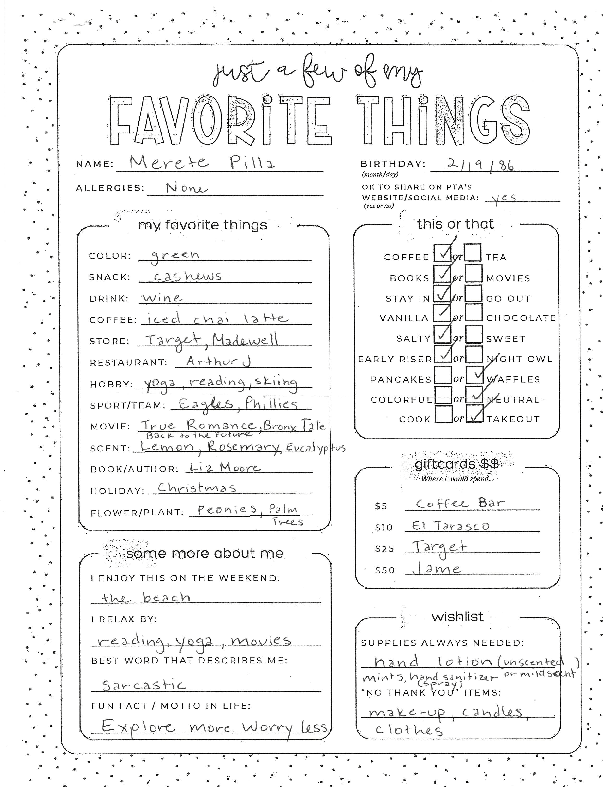 just a few of my
FAVORITE THINGS
NAME: Merete Pilla
BIRTHDAY: 2/19/86
(month/day)
ALLERGIES: None
OK TO SHARE ON PTA'S
WEBSITE/SOCIAL MEDIA: yes
(yes or no)
my favorite things
COLOR: green
SNACK: cashews
DRINK: wine
COFFEE: iced chai latte
STORE: Target, Madewell
RESTAURANT: Arthur J
HOBBY: yoga, reading, skiing
SPORT/TEAM: Eagles, Phillies
MOVIE: True Romance, Bronx Tale
Back to the Future
SCENT: Lemon, Rosemary, Eucalyptus
BOOK/AUTHOR: Liz Moore
HOLIDAY: Christmas
FLOWER/PLANT: Peonies, Palm
Trees
this or that
COFFEE ✓ or TEA
BOOKS ✓ or MOVIES
STAY IN ✓ or GO OUT
VANILLA ✓ or CHOCOLATE
SALTY ✓ or SWEET
EARLY RISER ✓ or NIGHT OWL
PANCAKES or ✓ WAFFLES
COLORFUL or ✓ NEUTRAL
COOK or ✓ TAKEOUT
giftcards $$
Where I would spend...
$5 Coffee Bar
$10 El Tarasco
$25 Target
$50 Jame
some more about me
I ENJOY THIS ON THE WEEKEND:
the beach
I RELAX BY:
reading, yoga, movies
BEST WORD THAT DESCRIBES ME:
sarcastic
FUN FACT / MOTTO IN LIFE:
Explore more Worry less
wishlist
SUPPLIES ALWAYS NEEDED:
hand lotion (unscented)
or mild scent
mints, hand sanitizer
(spray)
"NO THANK YOU" ITEMS:
make-up, candles,
clothes